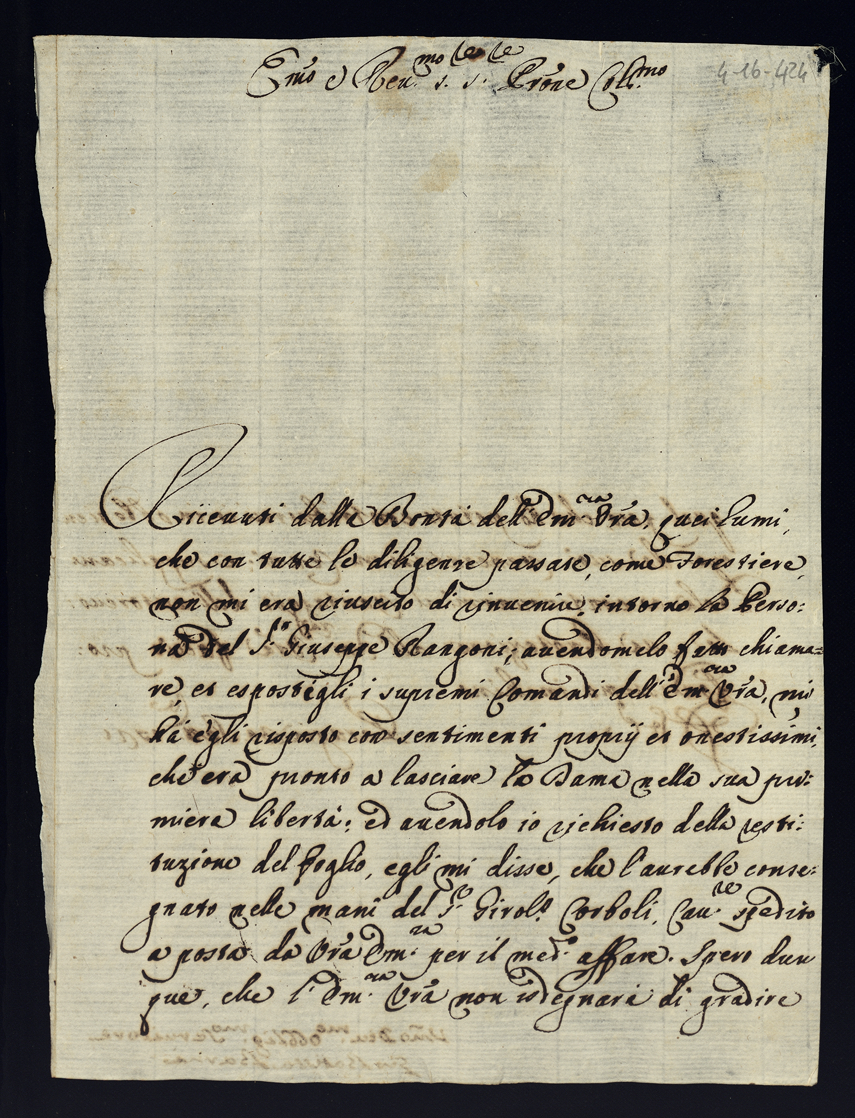 Em̃o e Reu.mo s.re s.re Prõne Col.mo
4-16-424
Riceuuti dalla Bontà dell'Em.za Vr̃a, quei lumi,
che con tutte le diligenze passate, come Forestiere,
non mi era riuscito di rinuenire, intorno la Perso:
na del S.r Giuseppe Rangoni; auendomelo fatto chiama=
re, et espostigli i supremi Comandi dell'Em.za Vr̃a, mi
hà egli risposto con sentimenti proprij et onestissimi,
che era pronto a lasciare la Dama nella sua pri:
miera libertà; ed auendolo io richiesto della resti:
tuzione del foglio, egli mi disse, che l'aurebbe conse:
gnato nelle mani del S.r Girol.o Corboli, Cau.re spedito
a posta da Vr̃a Em.za per il med.o affare. Spero dun
que, che l'Em.za Vr̃a non isdegnarà di gradire